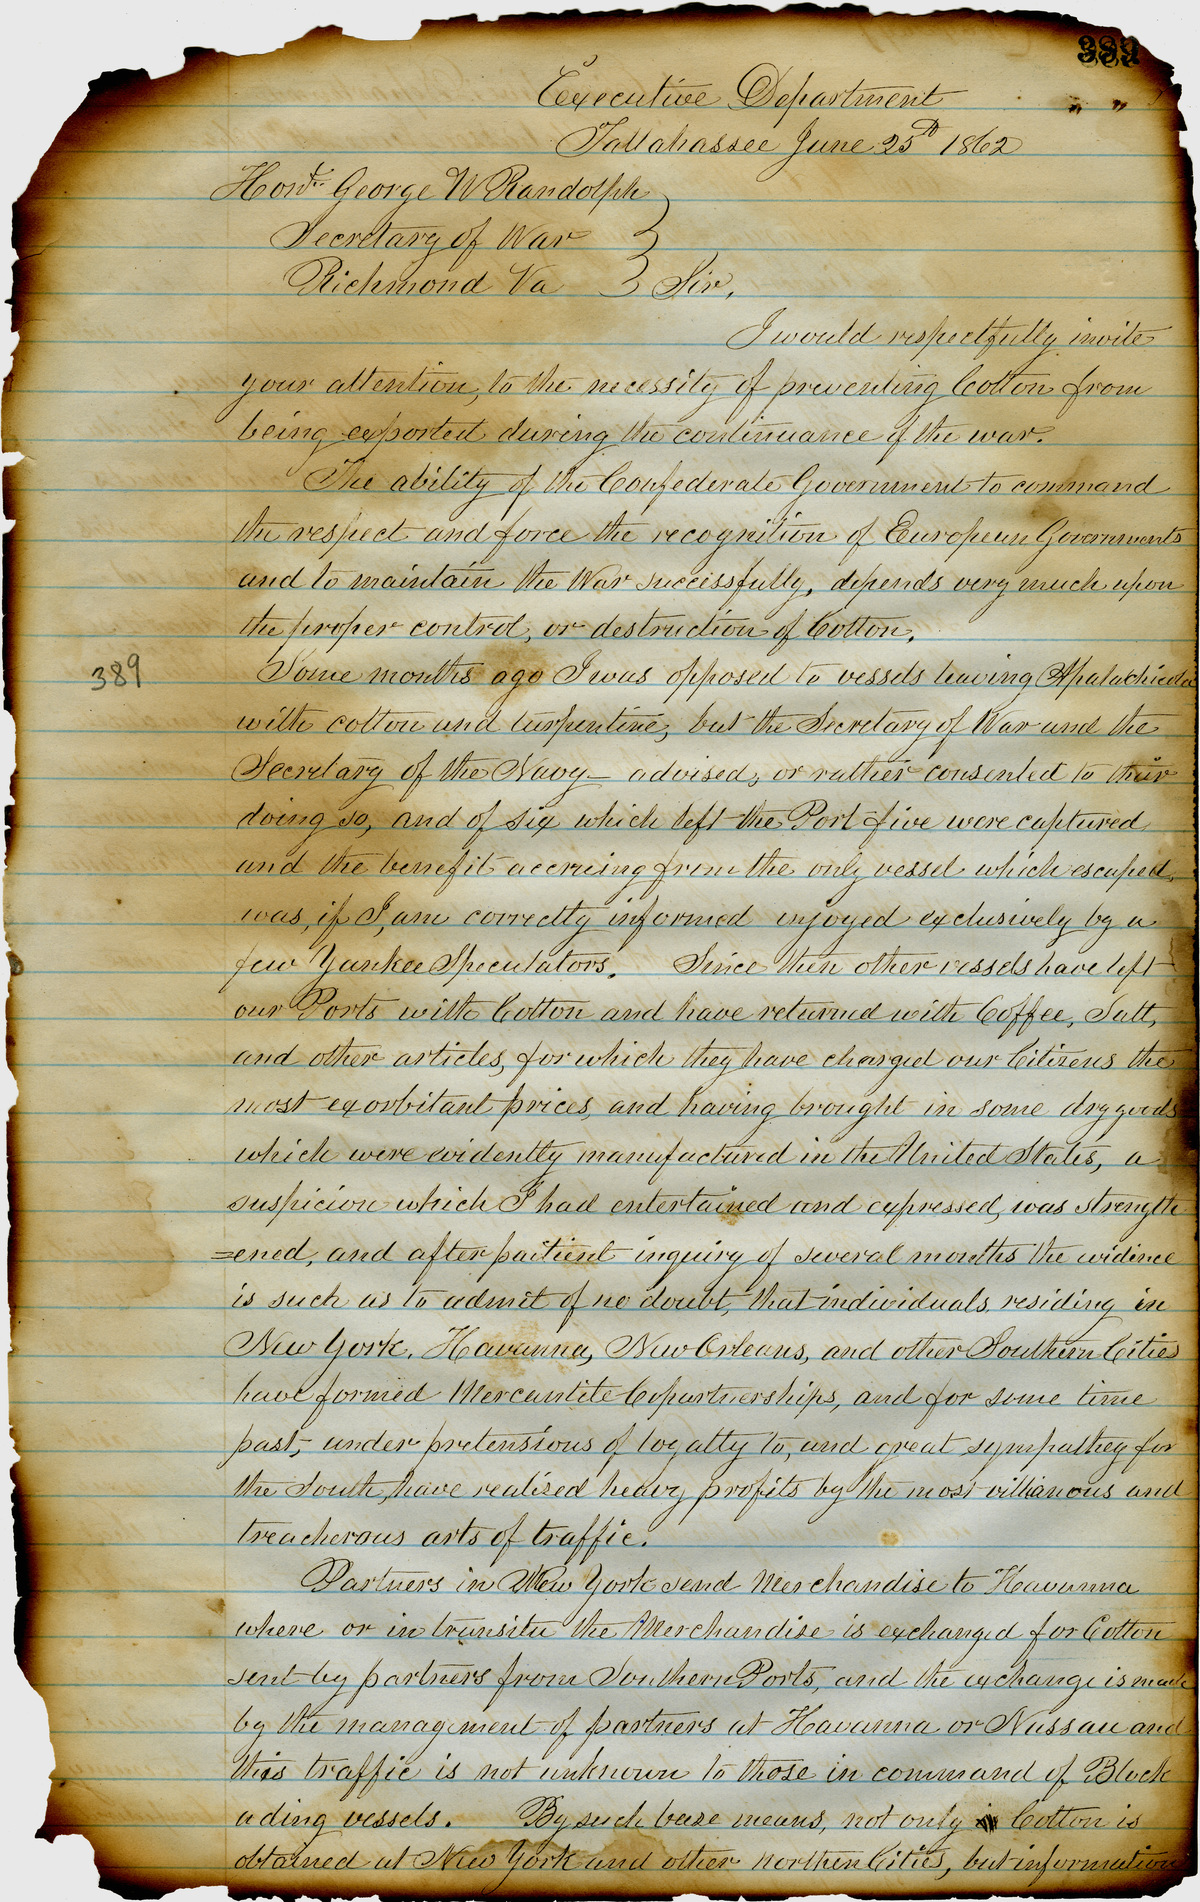 389
Executive Department " "
Tallahassee June 25th 1862
Honble George W Randolph
Secretary of War
Richmond Va } Sir,
I would respectfully invite
your attention, to the necessity of preventing Cotton from
being exported during the continuance of the war.
The ability of the Confederate Government to command
the respect and force the recognition of European Governments
and to maintain the War successfully, depends very much upon
the proper control, or destruction of Cotton.
389
Some months ago I was opposed to vessels leaving Apalachicola
with cotton and turpentine, but the Secretary of War and the
Secretary of the Navy - advised, or rather consented to their
doing so, and of six which left the Port five were captured
and the benefit accruing from the only vessel which escaped,
was, if I, am correctly informed enjoyed exclusively by a
few Yankee Speculators. Since then other vessels have left
our Ports with Cotton and have returned with Coffee, Salt,
and other articles, for which they have charged our Citizens the
most exorbitant prices, and having brought in some dry goods
which were evidently manufactured in the United States, a
suspicion which I had entertained and expressed, was strength
=ened, and after paitient inquiry of several months the evidence
is such as to admit of no doubt, that individuals residing in
New York, Havanna, New Orleans, and other Southern Cities
have formed Mercantile Copartnerships, and for some time
past, under pretensions of loyalty to, and great sympathey for
the South, have realised heavy profits by the most villianous and
treacherous arts of traffic.
Partners in New York send Merchandise to Havanna
where or in transitu the Merchandise is exchanged for Cotton
sent by partners from Southern Ports, and the exchange is made
by the management of partners at Havanna or Nassau and
this traffic is not unknown to those in command of Block
ading vessels. By such base means, not only Cotton is
obtained at New York and other northern Cities, but information